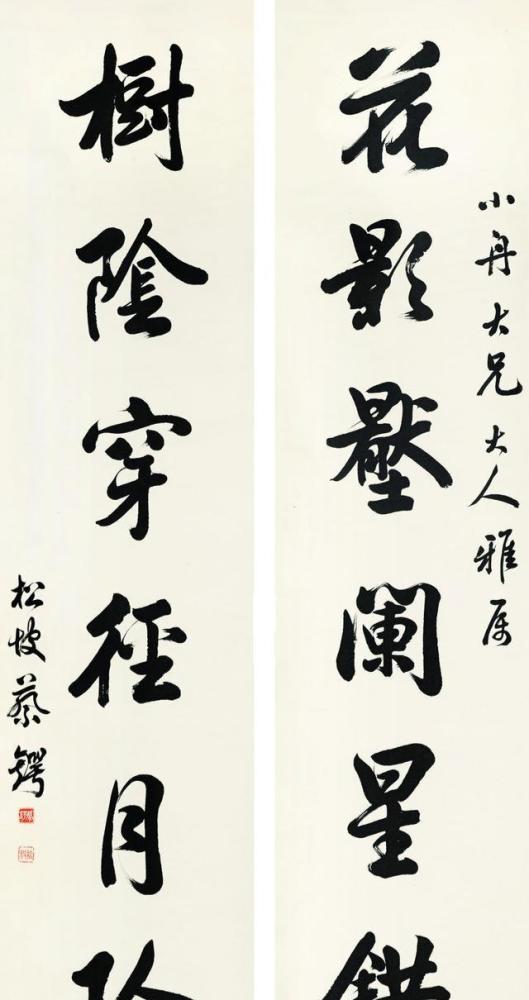 小舟大兄大人雅属
花影壓闌星錯
樹陰穿徑月
松坡蔡鍔